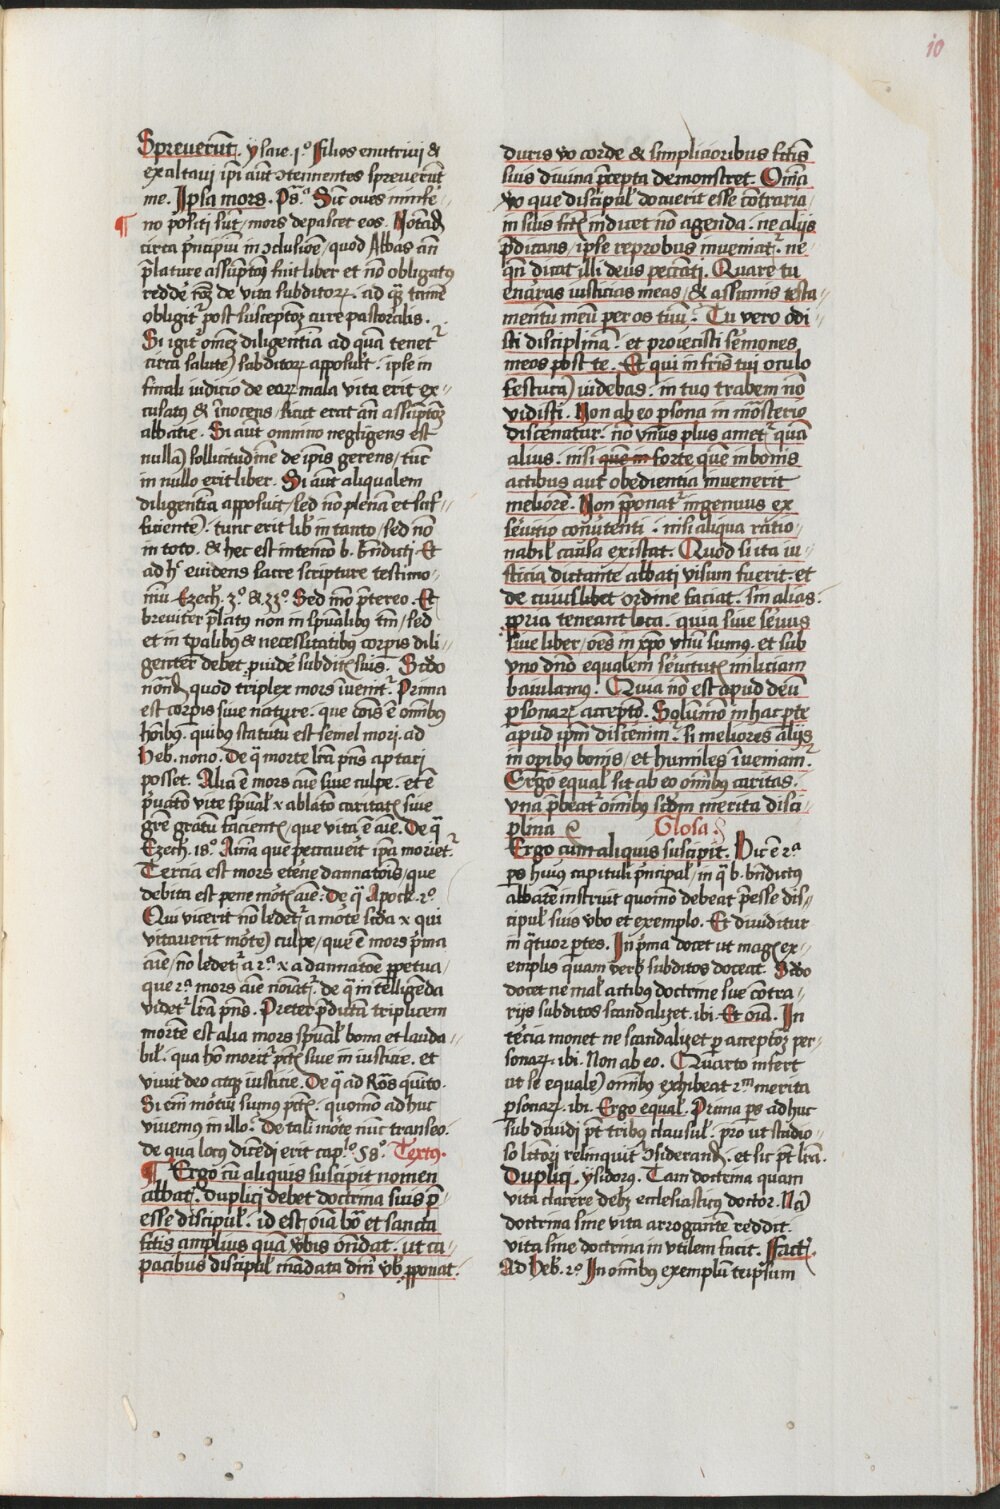 10
Spreuerūt. ysaie .1.º Filios enutriui &
exaltaui ipi aūt ↄtennentes spreuerūt
me. Ipsa mors. Ps.ª Sic̄ oues in infe-
no pōsiti sūt/ mors depascet eos. Notād
circa pⁱncipiū in ↄclusiōe/ quod Abbas an̄
p̄lature assūptōꝫ fuit liber et nō obligatꝰ
redde᷑ rōꝫ de vita subditoꝝ. ad qꝫ tamē
obligit᷑ post susceptōꝫ cure pastoralis.
Si igit᷑ omēꝫ diligentiā ad quā tenet᷑
circa salutē subditoꝝ apposuīt. ipse in
finali iudicio de eaꝝ mala vita erit ex-
cusatꝰ & īnocens/ sicut erat an̄ assūptōꝫ
abbatie. Si aūt omnino negligens est
nullā sollicitudinē de ipīs gerens/ tūc
in nullo erit liber. Si aūt aliqualem
diligentiā apposuit/ sed nō plenā et suf-
ficientē. tunc erit lib̄ in tanto/ sed nō
in toto. & hec est intencō b. Bn̄dicti. Et
ad hͦ euidens sacre scripture testimo-
niū Ezech̄. 3.º & .33.º Sed īmo p̄tereo. Et
breuiter p̄latꝰ non in spūalibꝫ tm̄/ sed
et in tp̄alibꝫ & necessitatibꝫ corpīs dili-
genter debet ꝓuide᷑ subditꝭ suis. Scd̄o
nōnd̄ quod triplex mors īuenit᷑. Prima
est corpis siue nature. que cōis ē omībꝫ
hōibꝫ. quibꝫ statutū est semel mori. ad
Heb̄. nono. De q̄ morte lr̄a pn̄s aptari
posset. Alia ē mors aīe siue culpe. et ē
pⁱuatō vite spūal̄ x ablatō caritatꝭ siue
grē gratū facientꝭ/ que vita ē aīe. De q̄
Ezech̄. 18.º Aīa que peccaueīt ipa moriet᷑.
Tercia est mors etēne dannatōis/ que
debita est pene mo᷑tꝭ aīe. De q̄ Apoc̄. 2.º
Qui vicerit nō ledet᷑ a mo᷑te scd̄a x qui
vitauerit mo᷑tē culpe/ que ē mors pⁱma
aīe/ nō ledet᷑ a 2.ª x a dannatōe ꝑpetua/
que 2.ª mors aīe nōīat᷑. de q̄ intelligenda
videt᷑ lr̄a pn̄s. Preter p̄dictā triplicem
mortē est alia mors spūal̄ bona et lauda-
bil̄. qua hō morit᷑ pctꝭ siue in iusticie. et
viuit deo atqꝫ iusticie. De q̄ ad Ro᷑s qūito.
Si em̄ mo᷑tui sumꝰ pctꝭ. quomō adhuc
viuemꝰ in illo. De tali mo᷑te nūc transeo.
de qua locꝰ dicēdi erit cap.ˡº 58.º Textꝰ.
¶ Ergo cū aliquis suscipit nomen
abbatꝭ. duplici debet doctrina suis p̄-
esse discipul̄. id est oīa bōa et sancta
fctīs amplius quā v̄bis ōndat. ut ca-
pacibus discipul̄ mādata dnī v̄b̄ ꝓponat.
duris v̄o corde & simplicioribus fctīs
suis diuina p̄cepta demonstret. Om̄ia
v̄o que discipul̄ docuerit esse cōntraria/
in suis fctꝭ indicet nō agenda. ne alijs
p̄dicans/ ipse reprobus inueniat᷑. ne
qn̄ dicat illi deus peccāti. Quare tu
enarras iusticias meas/ & assumis testa-
mentū meū per os tuū. Tu vero odi-
sti disciplinā. et proiecisti se᷑mones
meos post te. Et qui in frīs tui oculo
festucā videbas. in tuo trabem nō
vidisti. Non ab eo ꝑsona in mōsterio
discernatur. nō vnꝰs plus amet᷑ quā
alius. nisi que in forte quē in bonis
actibus aut obedientia inuenerit
meliorē. Non p̄ponat᷑ ingenuus ex
se᷑uitio cōnu᷑tenti. nisi aliqua rātio-
nabil̄ causa existat. Quod si ita iu-
sticia dictante abbati visum fuerit. et
de cuiuslibet ordine faciat. sin alias.
ꝓpria teneant loca. quia siue se᷑uus
siue liber/ oēs in xp̄o vnū sumꝰ. et sub
vno dnō equalem se᷑uitutꝭ miliciam
baiulamꝰ. Quia nō est apud deū
ꝑsonaꝝ acceptō. Solūmō in hac ꝑte
apud ipm̄ discernim᷑. si meliores alijs
in opībꝰ bonis/ et humiles īueniam᷑.
Ergo equal̄ sit ab eo omībꝫ caritas.
vna p̄beat᷑ omībꝫ scd̄m merita disci-
plina Glosa
Ergo cūm aliquis suscipit. Hic ē 2.ª
ꝑs huiꝰ capituli pⁱncipal̄/ in q̄ b. bn̄dictꝰ
abbatē instruit quomō debeat p̄esse dis-
cipul̄ suis v̄bo et exemplo. Et diuiditur
in q̄tuor ꝑtes. In pⁱma docet ut magꝭ ex-
emplis quam verbꝭ subditos doceat. Scd̄o
docet ne mal̄ actibꝫ doctrine sue cōtra-
rijs subditos scandalizet. ibi. Et oīa. In
te᷑cia monet ne scandalizet ꝑ acceptōꝫ per-
sonaꝝ. ibi. Non ab eo. Quarto infert
ut se equalē omībꝫ exhibeat 2.ᵐ merita
ꝑsonaꝝ. ibi. Ergo equal̄. Prima ꝑs adhuc
sub diuidi pt̄ tribꝫ clausul̄. pro ut studio-
so lc̄tori relinquit᷑ ↄsiderand̄. et sic pt̄ lr̄a.
Duplici. ysidorꝰ. Tam doctrina quam
vita clarere debꝫ ecclesiasticꝰ doctor. Nā
doctrina sine vita arrogantē reddit.
vita sine doctrina in vtilem facit. Factꝭ.
Ad Heb̄. 2.º In omībꝫ exemplū teipsum